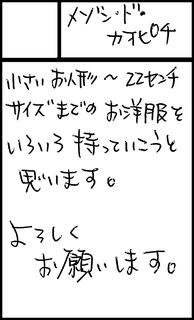 メゾン・ド・
カオヒロチ
小さいお人形～22センチ
サイズまでの お洋服を
いろいろ 持っていこうと
思います。
よろしく
お願いします。